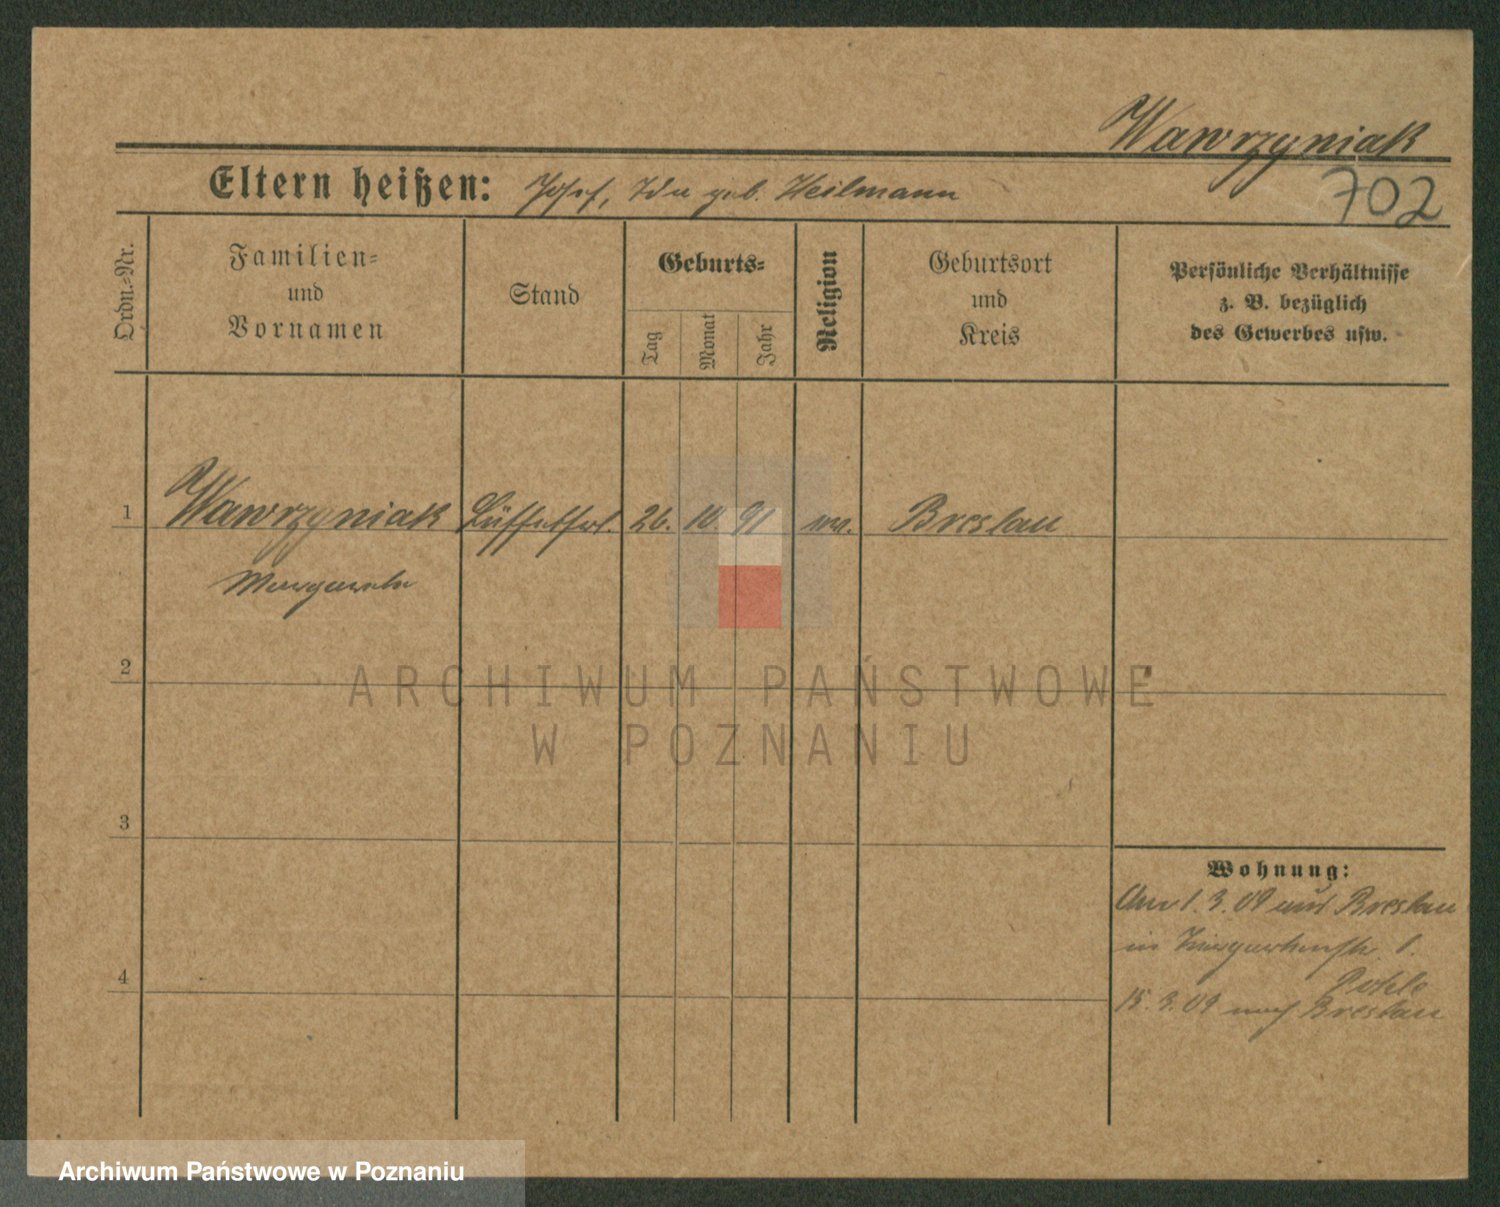 Wawrzyniak
Eltern heißen: Josef, Ida geb. Heilmann
702
Ordn.-Nr.
Familien-
und
Vornamen
Stand
Geburts-
Tag
Monat
Jahr
Religion
Geburtsort
und
Kreis
Persönliche Verhältnisse
z. B. bezüglich
des Gewerbes usw.
1 Wawrzyniak Büffetfrl. 26. 10 91 ev. Breslau
Margarete
2
3
4
Wohnung:
Am 1. 3. 09 aus Breslau
in 1.
Pohle
15. 3. 09 nach Breslau
ARCHIWUM PAŃSTWOWE
W POZNANIU
Archiwum Państwowe w Poznaniu